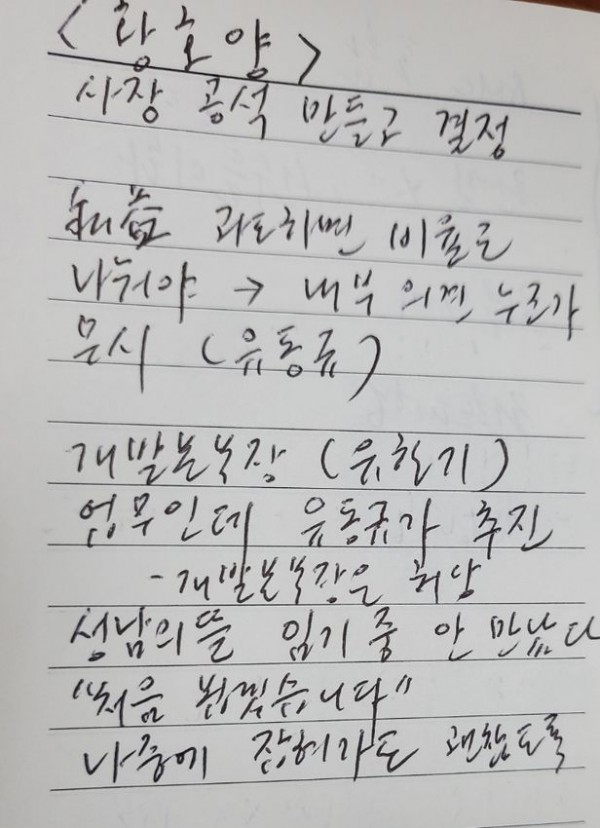 <황호양>
사장 공석 만들고 결정
과도하면 비율로
나눠야 → 내부 의견 누군가
무시 (유동규)
개발본부장 (유한기)
업무인데 유동규가 추진
- 개발본부장은 허당
성남의뜰 임기 중 안 만났다
"처음 뵙겠습니다"
나중에 잡혀가도 괜찮도록